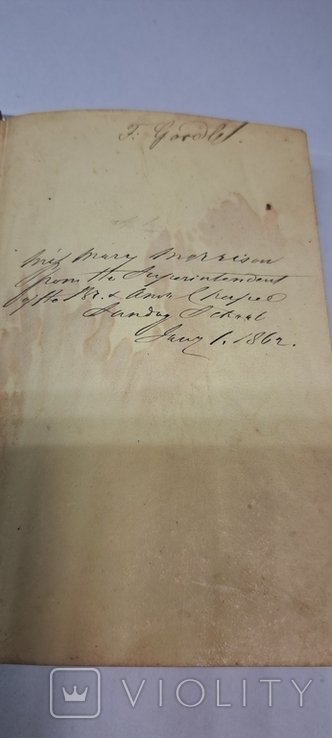 T. Goodl
Miss Mary Morrison
From the Superintendent
of the & Ann Chapel
Sunday School
Jany 1. 1862.
VIOLITY